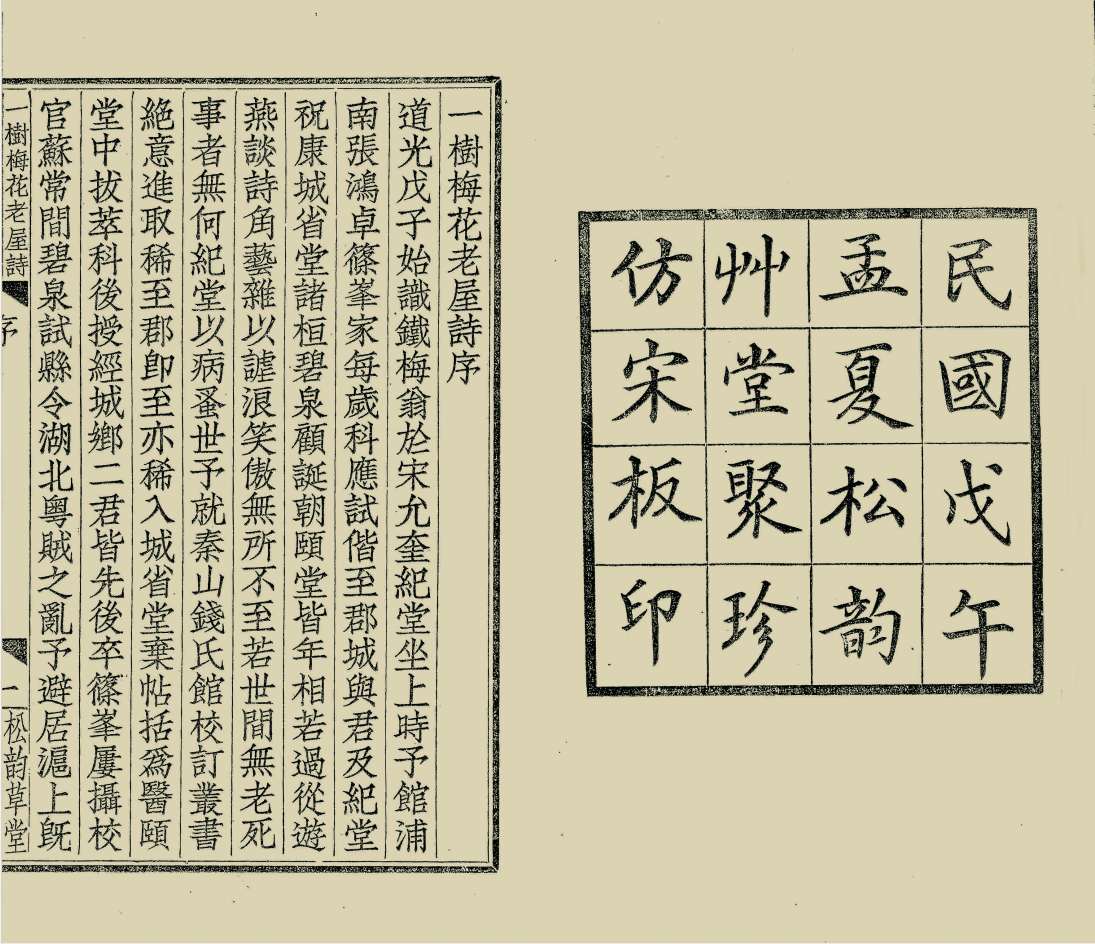 民國戊午
孟夏松韵
艸堂聚珍
仿宋板印
一樹梅花老屋詩序
道光戊子始識鐵梅翁於宋允奎紀堂坐上時予館浦
南張鴻卓篠峯家每歲科應試偕至郡城與君及紀堂
祝康城省堂諸桓碧泉顧誕朝頤堂皆年相若過從遊
燕談詩角藝雜以謔浪笑傲無所不至若世間無老死
事者無何紀堂以病蚤世予就秦山錢氏館校訂叢書
絕意進取稀至郡卽至亦稀入城省堂棄帖括爲醫頤
堂中拔萃科後授經城鄉二君皆先後卒篠峯屢攝校
官蘇常間碧泉試縣令湖北粵賊之亂予避居滬上旣
一樹梅花老屋詩
序
一
松韵草堂